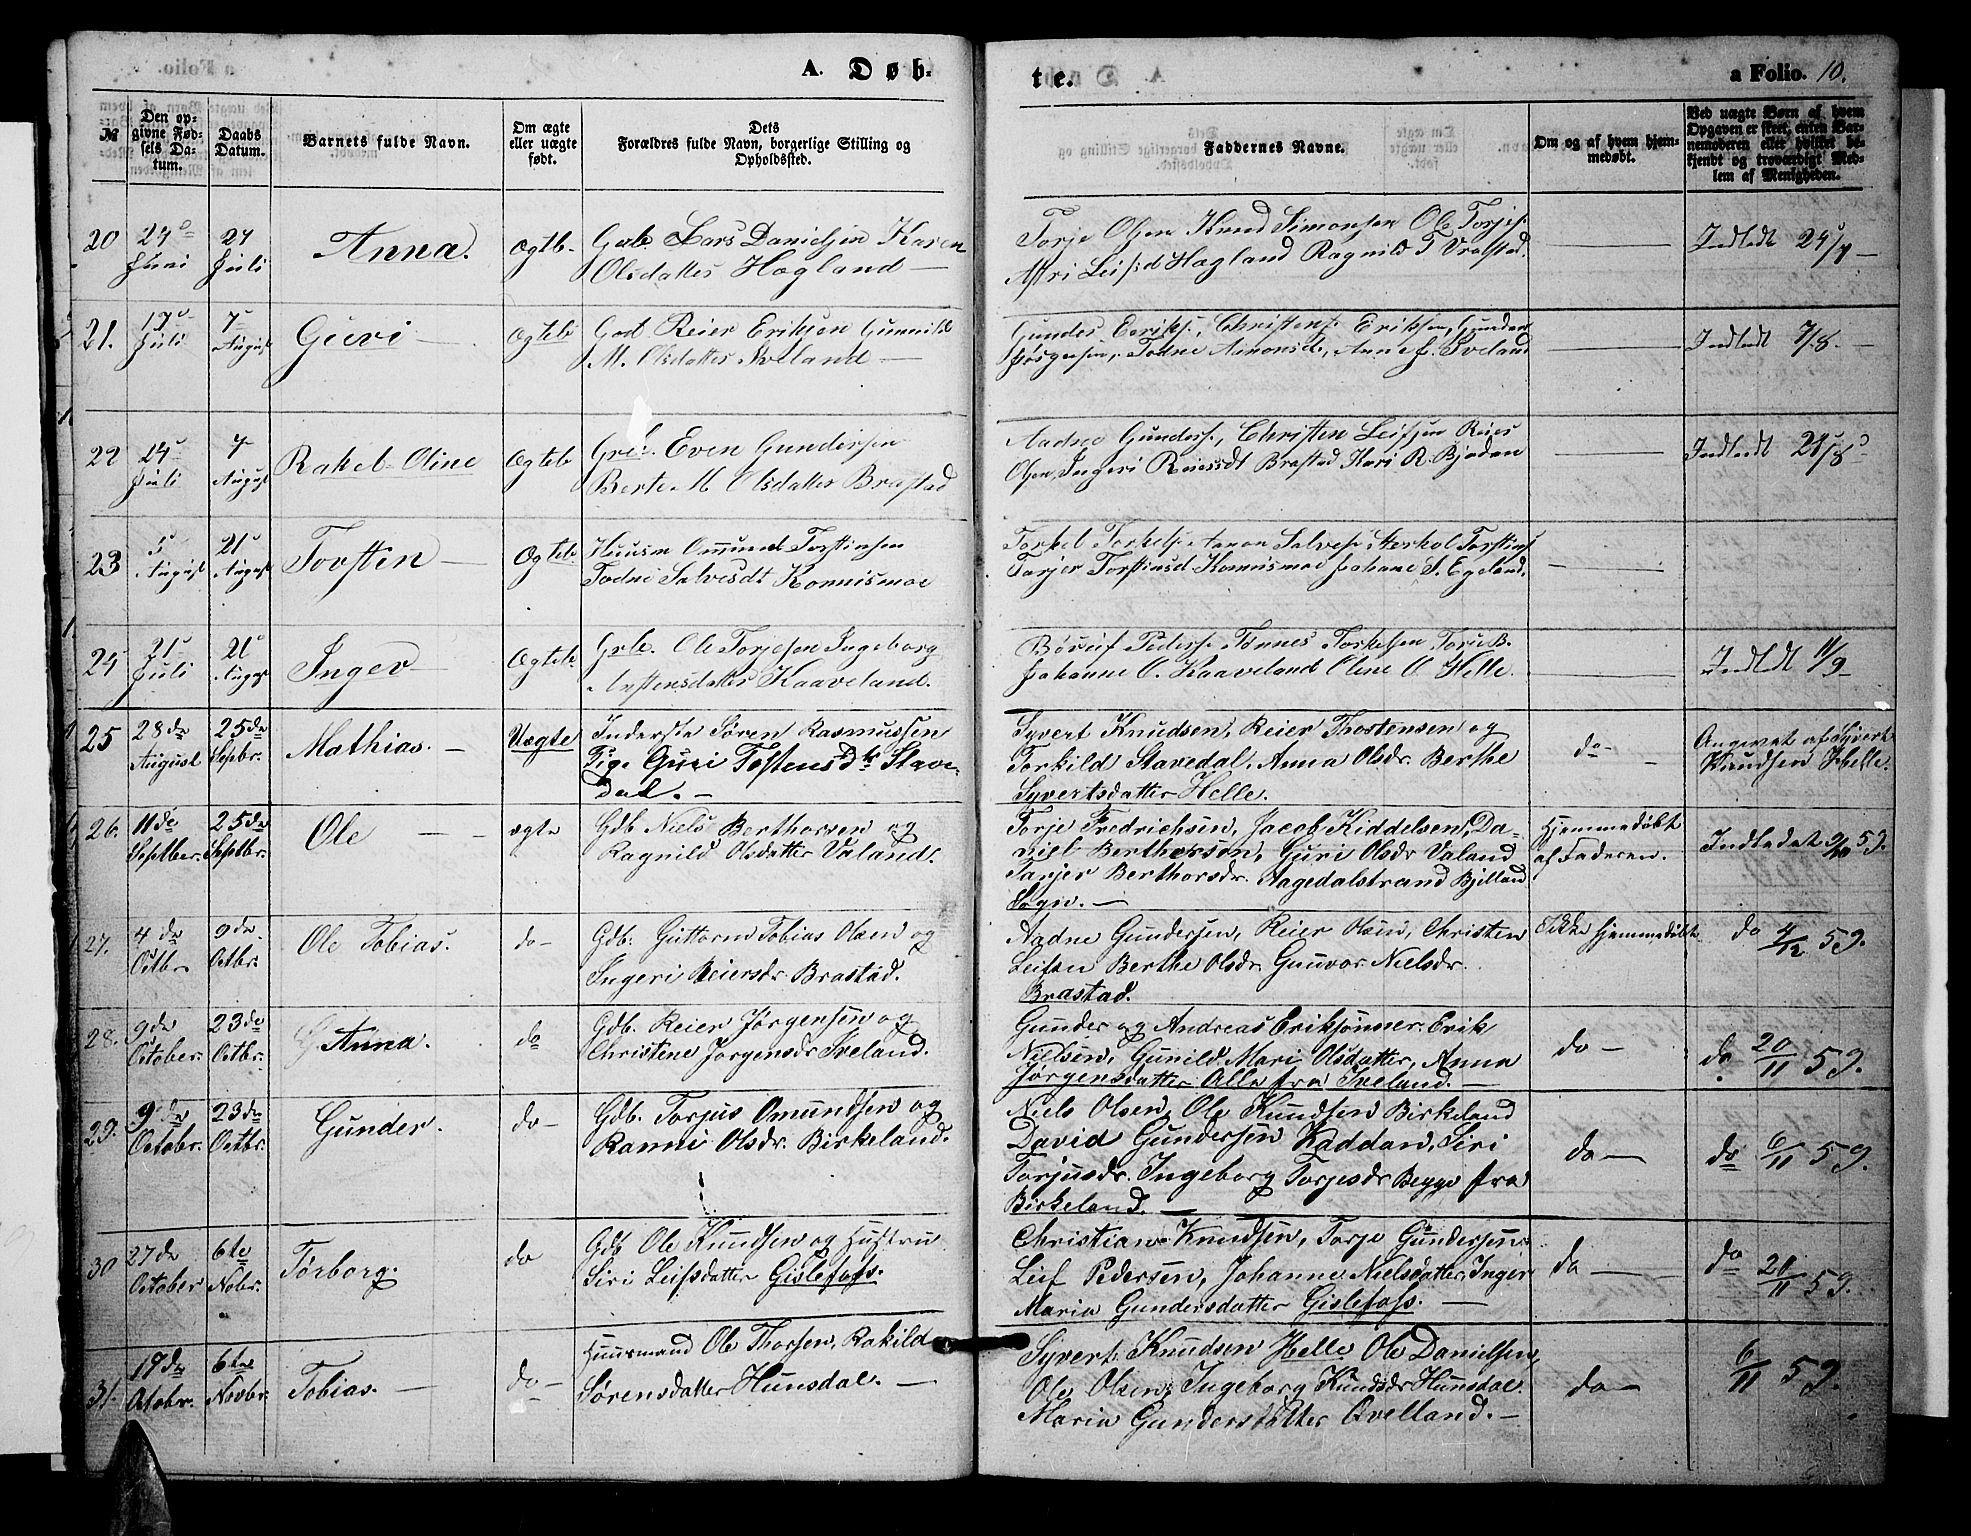 A. Døb-
te.
a Folio. 10.
№
Den op-
givne Fød-
sels Da-
tum.
Daabs
Datum.
Barnets fulde Navn.
Om ægte
eller uægte
født.
Dets
Forældres fulde Navn, borgerlige Stilling og
Opholdssted.
Faddernes Navne.
Om og af hvem hjem-
medøbt.
Ved uægte Børn af hvem
Opgaven er skeet, enten Bar-
nemoderen eller hvilket be-
kjendt og troværdigt Med-
lem af Menigheden.
20
24
Juni
24
Juli
Anna.
Ogtb.
Lars Danielsen Karen
Olsdatter Hogland —
Torje Olsen Knud Simonsen Ole Torjes.
Leifsd Hogland Ragnild T
Indledt
21.
17
Juli
7
August
Ogteb
Reier Eriksen Gunnild
M. Olsdatter
Gunder Eeriks., Christens. Eriksen, Gunder
Jørgensen, Todne Aanonsd., Anne J. Sveland
Indledt 7/8.
22
24
Juli
7
August
Rakel Oline
Ogteb
Even Gundersen
Berte M Olsdatter Brastad
Aadne Gunders., Christen Leifsen Reier
Olsen, Ingeri Reiersdt Brastad Kari R.
Indledt
23
5
August
21
August
Tosten
Ogteb
Huusm Omund Torstensen
Todne Salvesdt Konnismoe
Torkel Torkels. Aanon Salves.
Tarjer Torstensd Konnismoe Johane S. Egeland.
24
21
Juli
21
August
Inger
Ogteb
Ole Torjesen Ingeborg
Kaaveland.
Peders. Tønnes Torkelsen
Johanne O. Kaaveland Oline O Helle.
Indldt 11/9
25
28de
August
25de
Septbr.
Mathias. —
Uægte
Inderste Søren Rasmussen
Pige Guri Tostensdtr Stave-
dal. —
Syvert Knudsen, Reier Thostensen og
Torkild Stavedal, Anna Olsdr. Berthe
Syvertsdatter Helle.
do —
Angivet af Syvert
Knudsen Helle.
26.
11de
Septber.
25de
Septbr.
Ole — —
ægte
Gdb Niels Berthorsen og
Ragnild Olsdatter Valand.
Torje Fredrichsen, Jacob Kiddelsen, Da-
niel Berthorsen, Guri Olsdr Valand
Tarjer Berthorsdr. Aagedalstrand Bjelland
Sogn. —
Hjemmedøbt
af Faderen.
Indledet 9/10 59.
27.
4de
Octbr
9de
Octbr.
Ole Tobias.
do —
Gdb. Guttorm Tobias Olsen og
Ingeri Reiersdr Brastad.
Aadne Gundersen, Reier Christen
Leifsen Berthe Olsdr. Gunvor Nielsdr.
Brastad.
Ikke Hjemmedøbt
do 4/12 59.
28.
9de
October.
23de
Octbr.
Anna.
do
Gdb. Reier Jørgensen og
Christene Jørgensdr Sveland.
Gunder og Andreas Eriksønner. Erik
Nielsen, Gunild Mari Olsdatter, Anna
Jørgensdatter Alle fra Sveland. —
do —
do 20/11 59.
29.
9de
Octobr.
23de
Octbr.
Gunder.
do —
Gdb. Torjus Omundsen og
Ranni Olsdr. Birkeland.
Niels Olsen, Ole Knudsen Birkeland
David Gundersen Kaddan, Siri
Torjusdr. Ingeborg Torjesdr Begge fra
Birkeland. —
do —
do 6/11 59.
30
27de
October
6te
Nobr.
Torborg.
do
Gdb Ole Knudsen og Hustru
Siri Leifsdatter Gislefoss.
Christian Knudsen, Torje Gundersen
Leif Pedersen, Johanne Nielsdatter, Inger
Maria Gundersdatter Gislefoss. —
do —
do 20/11 59.
31.
17de
Octobr.
6te
Novbr.
Tobias. —
do —
Huusmand Ole Thorsen, Rakild
Sørensdatter Hunsdal. —
Syvert Knudsen Helle Ole Danielsen,
Ole Olsen, Ingeborg Knudsdr Hunsdal.
Maria Gundersdatter Øvelland. —
do —
6/11 59.